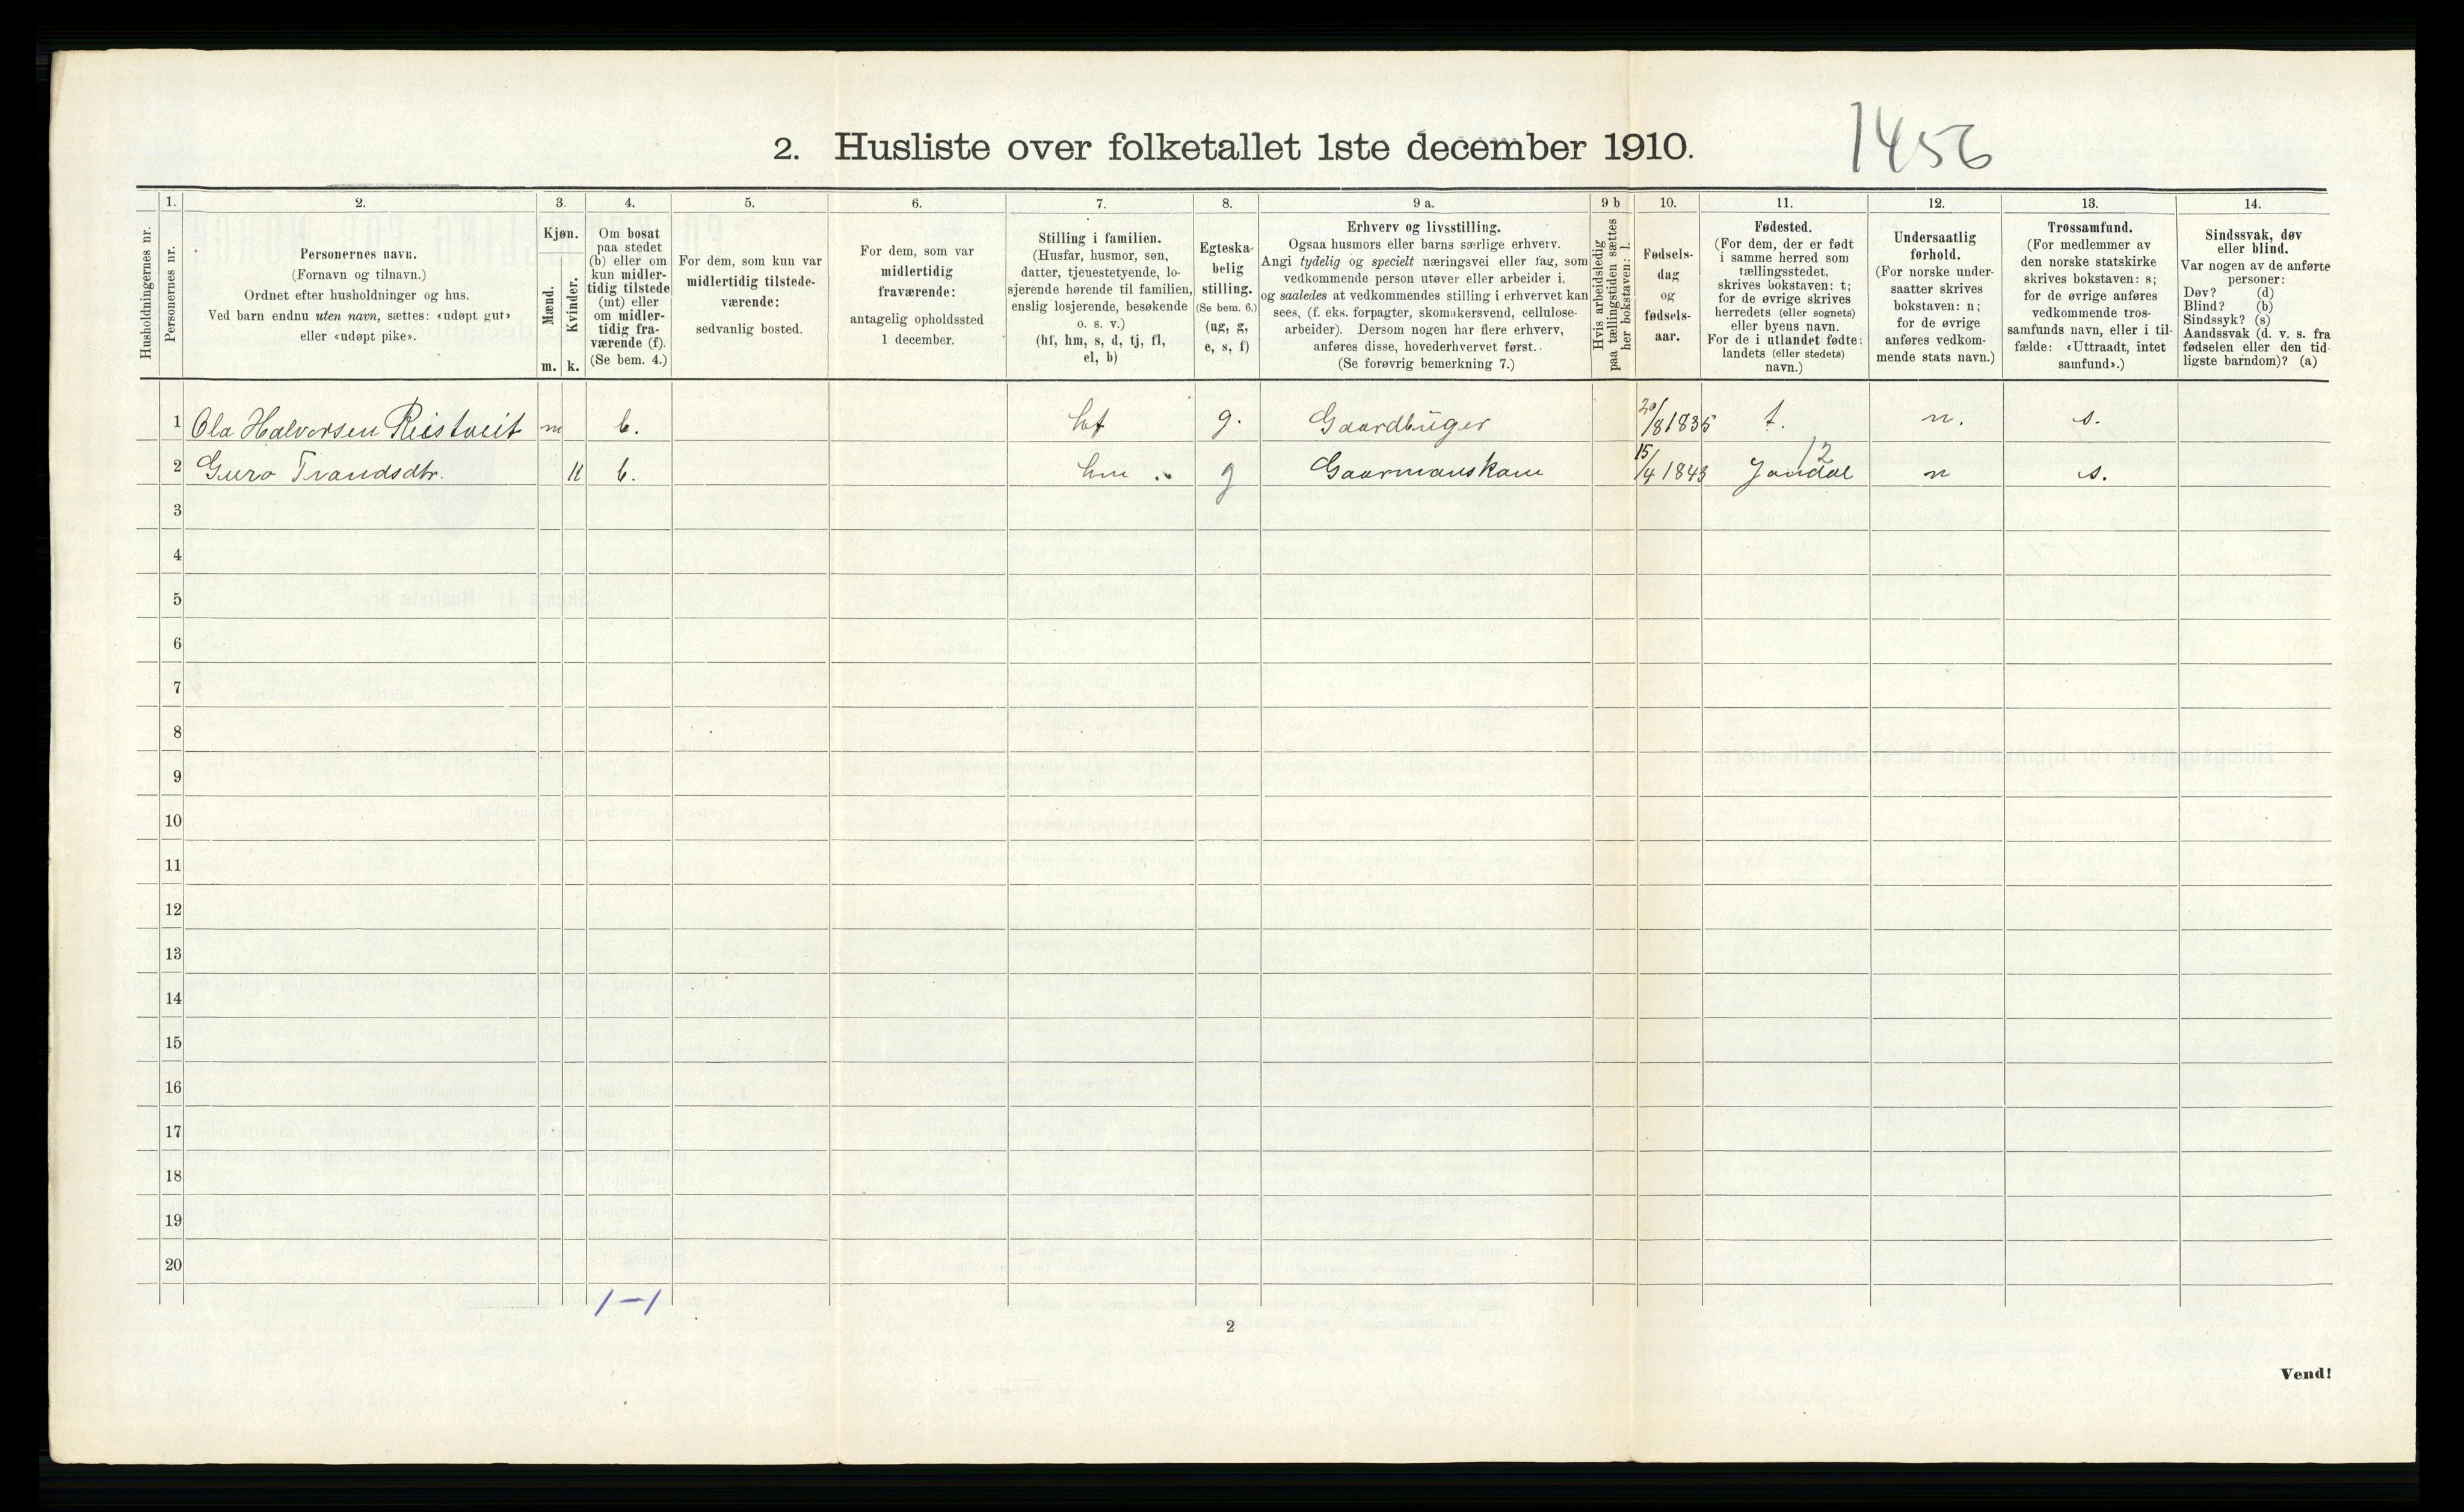 2. Husliste over folketallet 1ste december 1910.
1456
Husholdningernes nr.
1.
Personernes nr.
2.
Personernes navn.
(Fornavn og tilnavn.)
Ordnet efter husholdninger og hus.
Ved barn endnu uten navn, sættes: «udøpt gut»
eller «udøpt pike».
3.
Kjøn.
Mænd.
Kvinder.
m. k.
4.
Om bosat
paa stedet
(b) eller om
kun midler-
tidig tilstede
(mt) eller
om midler-
tidig fra-
værende (f).
(Se bem. 4.)
5.
For dem, som kun var
midlertidig tilstede-
værende:
sedvanlig bosted.
6.
For dem, som var
midlertidig
fraværende:
antagelig opholdssted
1 december.
7.
Stilling i familien.
(Husfar, husmor, søn,
datter, tjenestetyende, lo-
sjerende hørende til familien,
enslig losjerende, besøkende
o. s. v.)
(hf, hm, s, d, tj, fl,
el, b)
8.
Egteska-
belig
stilling.
(Se bem. 6.)
(ug, g,
e, s, f)
9 a.
Erhverv og livsstilling.
Ogsaa husmors eller barns særlige erhverv.
Angi tydelig og specielt næringsvei eller fag, som
vedkommende person utøver eller arbeider i,
og saaledes at vedkommendes stilling i erhvervet kan
sees, (f. eks. forpagter, skomakersvend, cellulose-
arbeider). Dersom nogen har flere erhverv,
anføres disse, hovederhvervet først.
(Se forøvrig bemerkning 7.)
9 b
Hvis arbeidsledig
paa tællingstiden sættes
her bokstaven: l.
10.
Fødsels-
dag
og
fødsels-
aar.
11.
Fødested.
(For dem, der er født
i samme herred som
tællingsstedet,
skrives bokstaven: t;
for de øvrige skrives
herredets (eller sognets)
eller byens navn.
For de i utlandet fødte:
landets (eller stedets)
navn.)
12.
Undersaatlig
forhold.
(For norske under-
saatter skrives
bokstaven: n;
for de øvrige
anføres vedkom-
mende stats navn.)
13.
Trossamfund.
(For medlemmer av
den norske statskirke
skrives bokstaven: s;
for de øvrige anføres
vedkommende tros-
samfunds navn, eller i til-
fælde: «Uttraadt, intet
samfund».)
14.
Sindssvak, døv
eller blind.
Var nogen av de anførte
personer:
Døv? (d)
Blind? (b)
Sindssyk? (s)
Aandssvak (d. v. s. fra
fødselen eller den tid-
ligste barndom)? (a)
1 Ola Halvorsen Reistveit m b. hf g. Gaardbruger 20/8 1835 t. n. s.
12
2 Guro Trondsdtr. k b. hm g Gaarmanskone 15/4 1843 Jondal n s.
3
4
5
6
7
8
9
10
11
12
13
14
15
16
17
18
19
20
1–1
2
Vend!